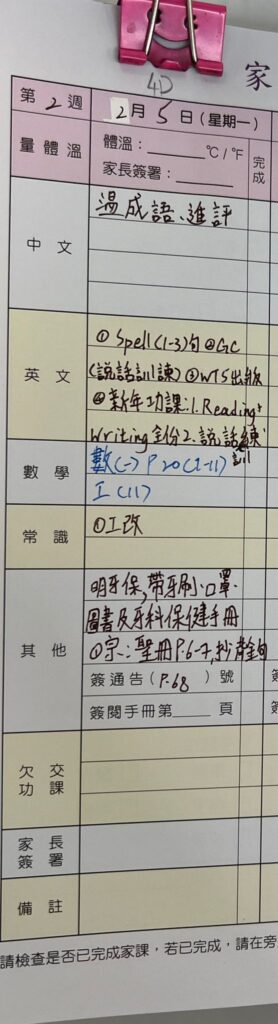 家
4D
第 2 週 2月 5 日(星期一)
量體溫 體溫：____℃/℉
家長簽署：____
完成
中文 溫成語、進評
英文 ① Spell (1-3)句 ②GC
(說話訓練) ③WTS出版
④新年功課：1. Reading+
Writing 全份 2. 說話訓練
數學 數(一) P.20 (2-11)
工(11)
常識 ①工改
其他 明牙保,帶牙刷、口罩、
圖書及牙科保健手冊
①宗：聖冊P.6-7,抄金句
簽通告(P.68)號
簽閱手冊第____頁
欠交功課
家長簽署
備註
請檢查是否已完成家課，若已完成，請在旁